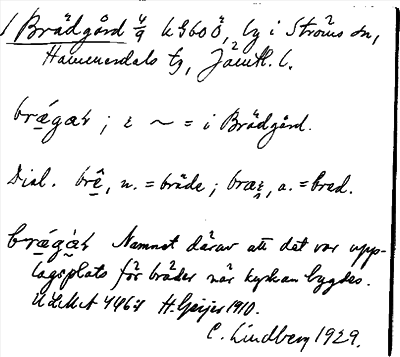 1 Brädgård 4/9 k G 60 ö, by i Ströms sn,
Hammerdals tg, Jämtl. l.
brǻgaɽ ; i ~ = i Brädgård.
Dial. brê, n. = bräde ; bræɪ, a. = bred.
brǻgàɽ Namnet därav att det var upp-
lagsplats för bräder när kyrkan bygdes.
ULMA 4467 H. Geijer 1910.
C. Lindberg 1929.